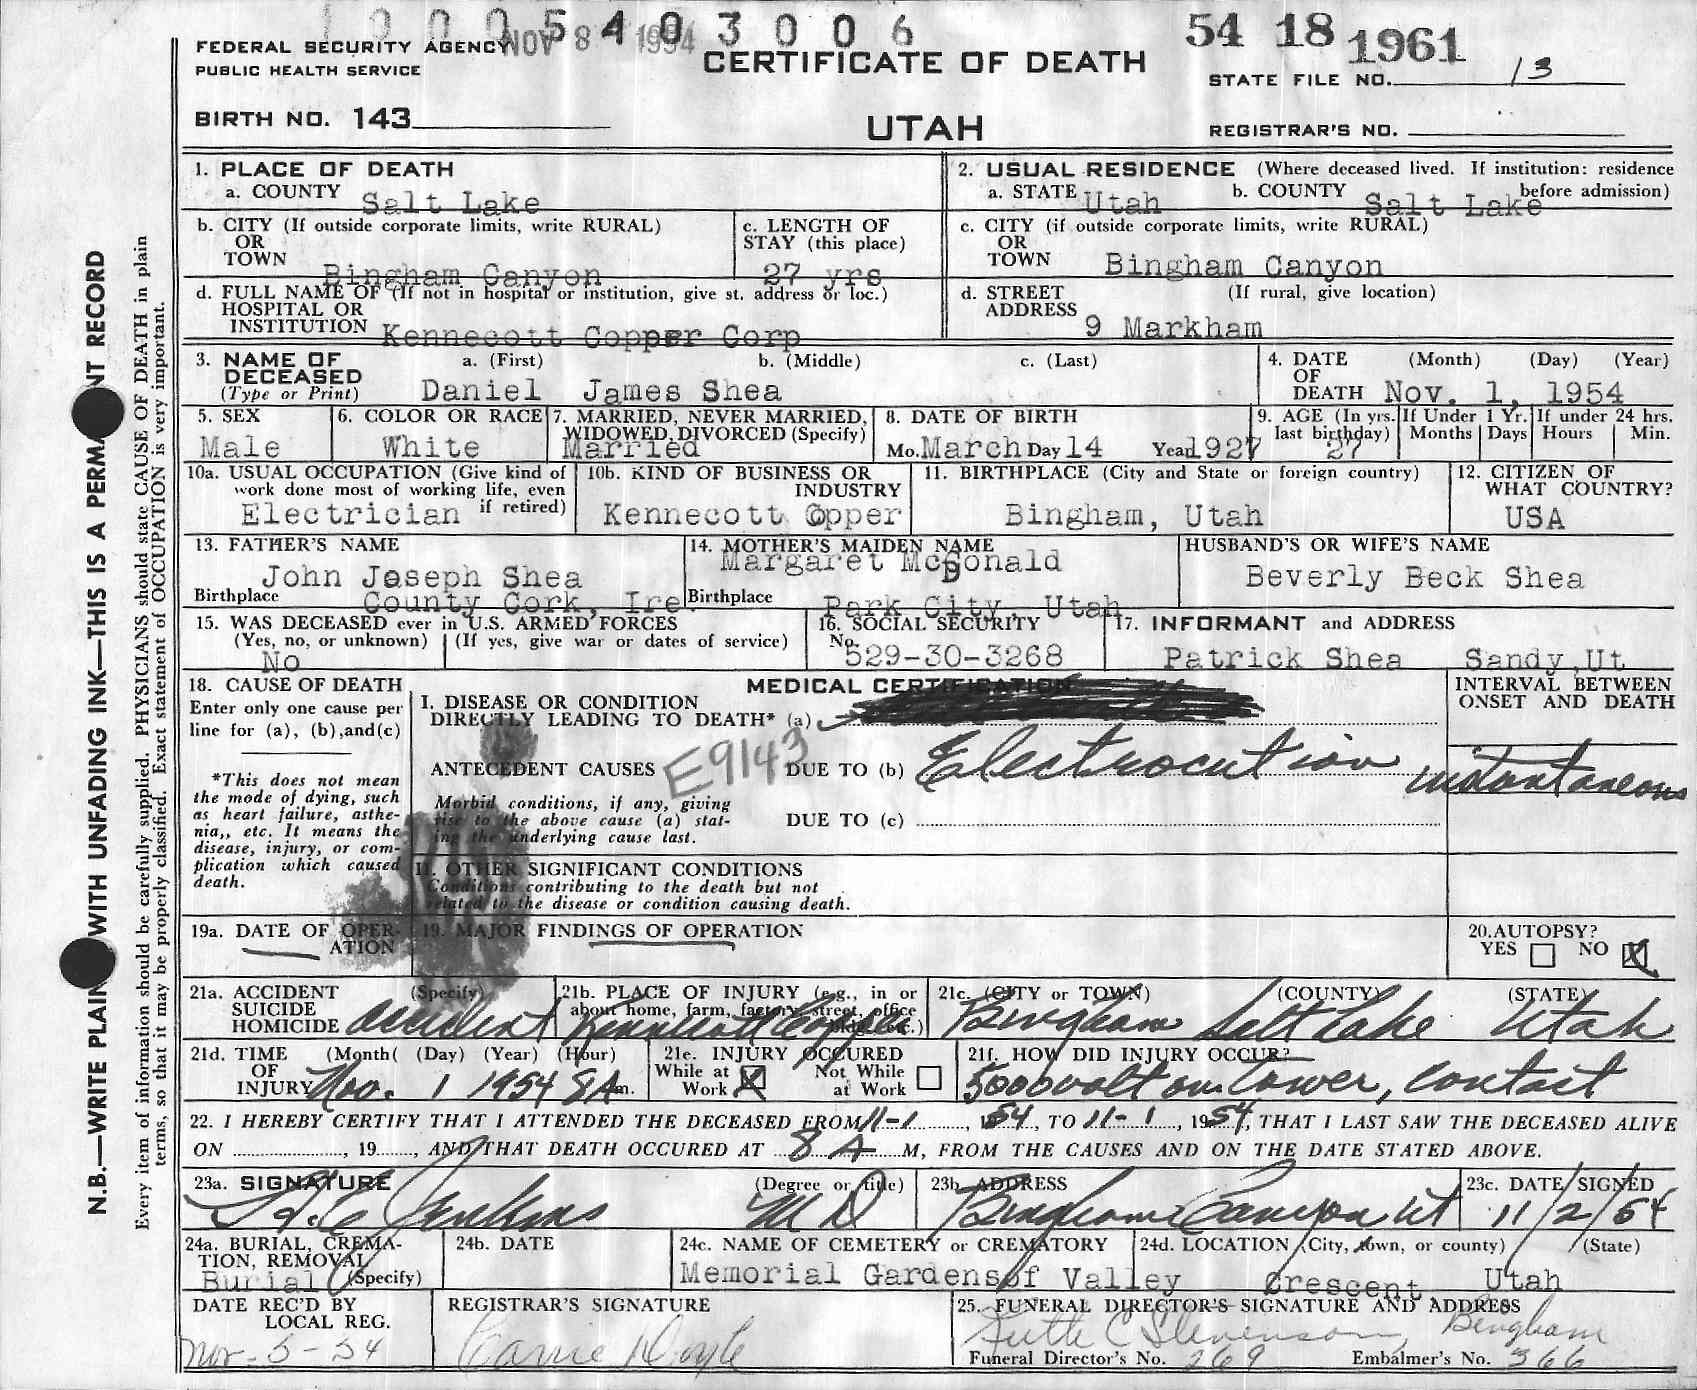 1 0 0 0 5 4 0 3 0 0 6
NOV 8 1954
54 18 1961
FEDERAL SECURITY AGENCY
PUBLIC HEALTH SERVICE
CERTIFICATE OF DEATH
STATE FILE NO. 13
BIRTH NO. 143
UTAH
REGISTRAR'S NO.
1. PLACE OF DEATH
a. COUNTY Salt Lake
2. USUAL RESIDENCE (Where deceased lived. If institution: residence before admission)
a. STATE Utah b. COUNTY Salt Lake
b. CITY (If outside corporate limits, write RURAL)
OR
TOWN Bingham Canyon
c. LENGTH OF
STAY (this place)
27 yrs
c. CITY (if outside corporate limits, write RURAL)
OR
TOWN Bingham Canyon
d. FULL NAME OF (If not in hospital or institution, give st. address or loc.)
HOSPITAL OR
INSTITUTION Kennecott Copper Corp
d. STREET (If rural, give location)
ADDRESS 9 Markham
3. NAME OF a. (First) b. (Middle) c. (Last)
DECEASED
(Type or Print) Daniel James Shea
4. DATE (Month) (Day) (Year)
OF
DEATH Nov. 1, 1954
5. SEX
Male
6. COLOR OR RACE
White
7. MARRIED, NEVER MARRIED,
WIDOWED, DIVORCED (Specify)
Married
8. DATE OF BIRTH
Mo. March Day 14 Year 1927
9. AGE (In yrs.
last birthday)
27
If Under 1 Yr.
Months Days
If under 24 hrs.
Hours Min.
10a. USUAL OCCUPATION (Give kind of
work done most of working life, even
if retired)
Electrician
10b. KIND OF BUSINESS OR
INDUSTRY
Kennecott Copper
11. BIRTHPLACE (City and State or foreign country)
Bingham, Utah
12. CITIZEN OF
WHAT COUNTRY?
USA
13. FATHER'S NAME
John Joseph Shea
Birthplace County Cork, Ire.
14. MOTHER'S MAIDEN NAME
Margaret McDonald
Birthplace Park City, Utah
HUSBAND'S OR WIFE'S NAME
Beverly Beck Shea
15. WAS DECEASED ever in U.S. ARMED FORCES
(Yes, no, or unknown) (If yes, give war or dates of service)
No
16. SOCIAL SECURITY
No. 529-30-3268
17. INFORMANT and ADDRESS
Patrick Shea Sandy, Ut
18. CAUSE OF DEATH
Enter only one cause per
line for (a), (b), and (c)
*This does not mean
the mode of dying, such
as heart failure, asthe-
nia,, etc. It means the
disease, injury, or com-
plication which caused
death.
MEDICAL CERTIFICATION
I. DISEASE OR CONDITION
DIRECTLY LEADING TO DEATH* (a)
ANTECEDENT CAUSES E9143 DUE TO (b) Electrocution
Morbid conditions, if any, giving
rise to the above cause (a) stat-
ing the underlying cause last.
DUE TO (c)
INTERVAL BETWEEN
ONSET AND DEATH
instantaneous
II. OTHER SIGNIFICANT CONDITIONS
Conditions contributing to the death but not
related to the disease or condition causing death.
19a. DATE OF OPER-
ATION
19. MAJOR FINDINGS OF OPERATION
20. AUTOPSY?
YES NO X
21a. ACCIDENT (Specify)
SUICIDE
HOMICIDE accident
21b. PLACE OF INJURY (e.g., in or
about home, farm, factory, street, office
bldg., etc.)
Kennecott Copper
21c. (CITY or TOWN) (COUNTY) (STATE)
Bingham Salt Lake Utah
21d. TIME (Month) (Day) (Year) (Hour)
OF
INJURY Nov. 1 1954 8 A m.
21e. INJURY OCCURED
While at Work X Not While at Work
21f. HOW DID INJURY OCCUR?
5000 volt on tower, contact
22. I HEREBY CERTIFY THAT I ATTENDED THE DECEASED FROM 11-1, 1954, TO 11-1, 1954, THAT I LAST SAW THE DECEASED ALIVE
ON , 19 , AND THAT DEATH OCCURED AT 8 A M, FROM THE CAUSES AND ON THE DATE STATED ABOVE.
23a. SIGNATURE (Degree or title)
Jenkins M D
23b. ADDRESS
Bingham Canyon Ut
23c. DATE SIGNED
11/2/54
24a. BURIAL, CREMA-
TION, REMOVAL
(Specify)
Burial
24b. DATE
24c. NAME OF CEMETERY or CREMATORY
Memorial Gardens of Valley
24d. LOCATION (City, town, or county) (State)
Crescent, Utah
DATE REC'D BY
LOCAL REG.
Nov-5-54
REGISTRAR'S SIGNATURE
Carrie Doyle
25. FUNERAL DIRECTOR'S SIGNATURE AND ADDRESS
Ruth C Stevenson, Bingham
Funeral Director's No. 269 Embalmer's No. 366
N.B.—WRITE PLAINLY WITH UNFADING INK—THIS IS A PERMANENT RECORD
Every item of information should be carefully supplied. PHYSICIANS should state CAUSE OF DEATH in plain
terms, so that it may be properly classified. Exact statement of OCCUPATION is very important.